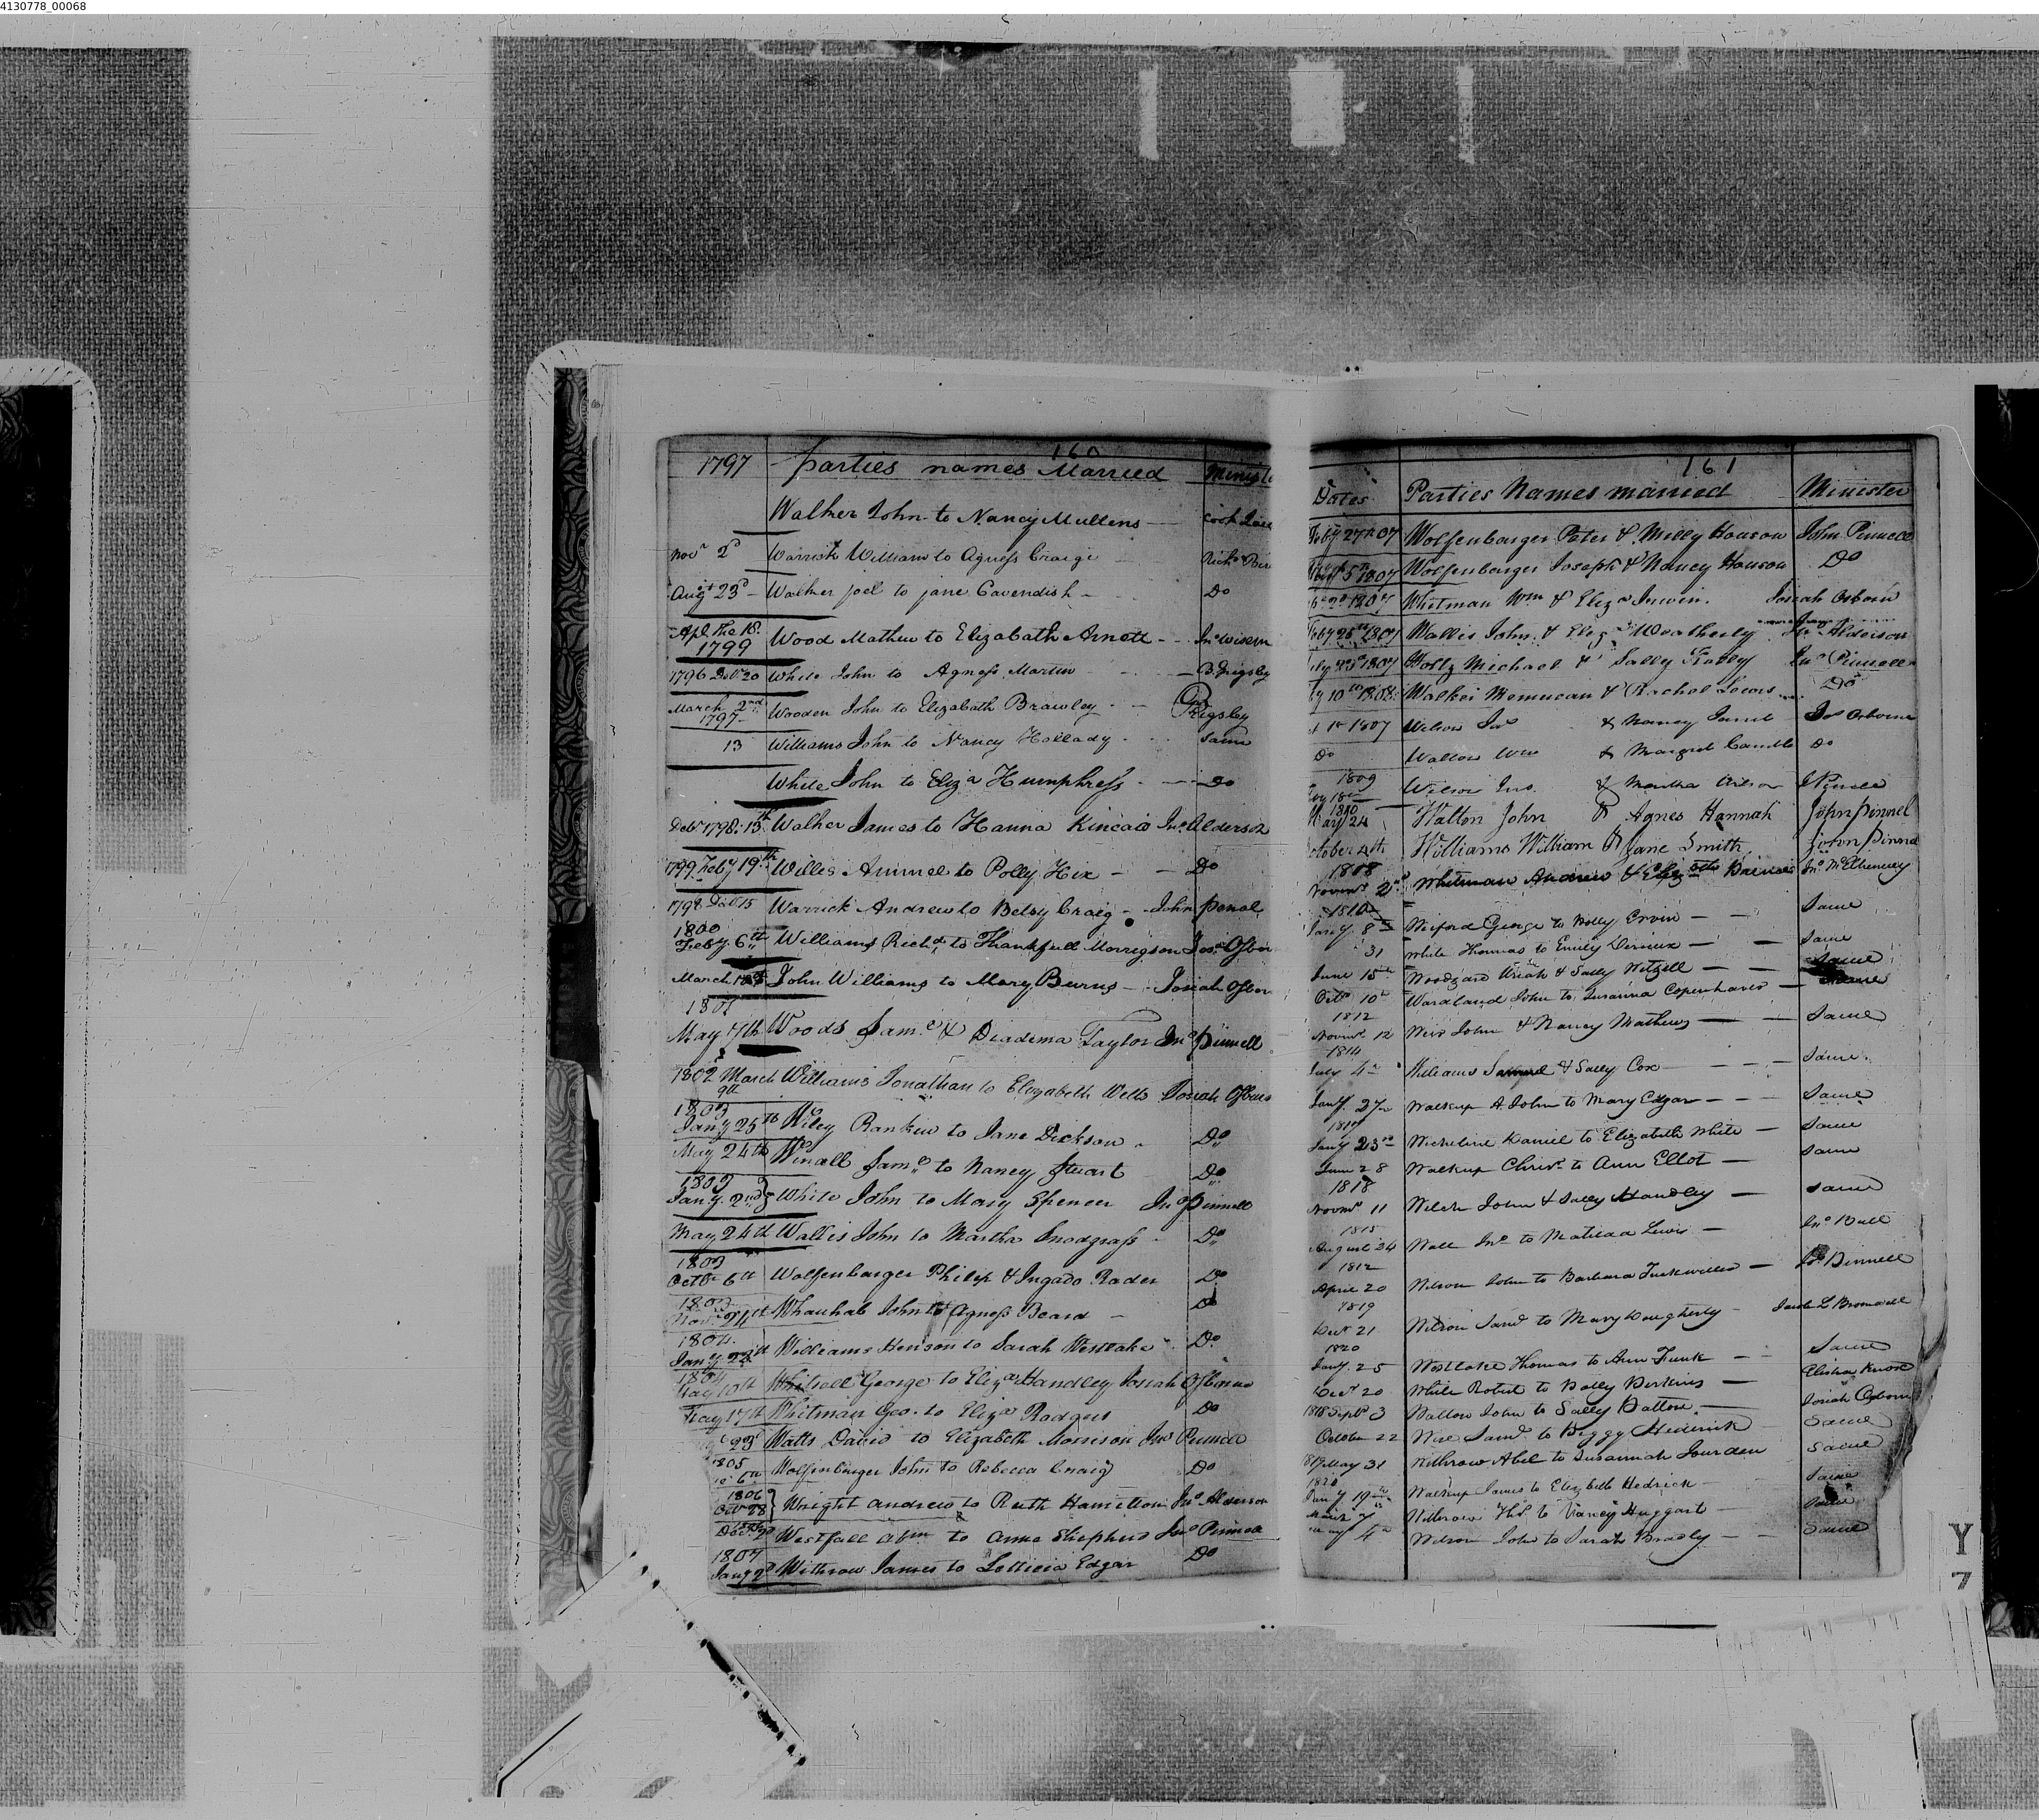 4130778_00068
160
1797 parties names Married Minist
Walker John to Nancy Mullens
Novr 2d Warrick William to Agness Craige
Augt 23d Walker joel to jane Cavendish Do
Apl the 18
1799 Wood Mathew to Elizabath Arnott Jno Wisem
1796 Decr 20 White John to Agness Martin B. Grigsby
March 2nd
1797 Wooden John to Elizabath Brawley Grigsby
13 Williams John to Nancy Hollady Same
White John to Eliza Humphress Do
Debr 1798 13th Walker James to Hanna Kincaid Jno Alderson
1799 Feby 19th Willis Ammel to Polly Hix Do
1798 Decr 15 Warrick Andrew to Betsy Craig John Penal
1800
Feby 6th Williams Richd to Thankfull Morrigson Jos. Osbor
March John Williams to Mary Burns Josiah Osbor
1801
May 7th Woods Saml & Diadema Taylor Jno Pinnell
1802 March
9th Williams Jonathan to Elizabeth Wells Josiah Osbur
1803
Jany 25th Wiley Rankin to Jane Dickson Do
May 24th Winall Saml to Nancy Stuart Do
1803
Jany 2nd White John to Mary Spencer Jno Pinnell
May 24th Wallis John to Martha Snodgrass Do
1803
Octbr 6th Wolfenbarger Philip & Ingado Rader Do
1803
Novr 24th Whauhab John to Agness Beard Do
1804
Jany 23d Williams Henson to Sarah Westlake Do
1804
May 10th Whitsall George to Eliza Handley Josiah Osborne
May 17th Whitman Geo. to Eliza Rodgers Do
23d Watts David to Elizabeth Morrison Jno Pinnell
1805
6th Wolfenbarger John to Rebecca Craig Do
1806
Octr 28 Wright Andrew to Ruth Hamilton Jno Alderson
Decr 2d Westfall Abm to Anna Shepherd Jno Pinnell
1807
Jany 2d Withrow James to Letticia Edgar Do
161
Dates Parties Names married Minister
Feby 27th 07 Wolfenbarger Peter & Milly Houson John Pinnell
5th 1807 Wolfenbarger Joseph & Nancy Houson Do
1807 Whitman Wm & Eliza Irwin. Josiah Osborn
Feby 26th 1807 Wallis John & Eliza Weatherly Jno Alderson
1807 Woltz Michael & Sally Jno Pinnell
10th 1808 Walker Memucan & Rachel Lewis Do
1st 1807 Wilson Jno & Nancy Jos Osborne
Do Walton Wm & Margret Do
1809
18th Wilson Jno. & Martha Wilson J Pinnell
1810
May 24 Walton John & Agnes Hannah John Pinnel
October 4th Williams William & Jane Smith John Pinnel
1808
Novemr 2nd Whitman Andrew & Elizabeth Jno McElhenney
1810
Jany 8th Wiford George to Polly Ervin Same
31 White Thomas to Emily Same
June 15th Woodyard Uriah & Sally Witzell Same
Octr 10th Wardland John to Susanna Copenhaver Same
1812
Novemr 12 Weir John & Nancy Mathews Same
1814
July 4th Williams Samuel & Sally Cox Same
Jany 27th Walkup A. John to Mary Edgar Same
Jany 23rd Wickeline Daniel to Elizabeth White Same
June 28 Walkup Chrisr to Ann Ellot Same
1818
Novemr 11 Welch John & Sally Handley Same
1815
August 24 Wall Jno to Matilda Lewis Jno Ball
1812
April 20 Wilson John to Barbara Tuckwiller Jno Pinnell
1819
Decr 21 Wilson Saml to Mary Daugherty
1820
Jany 25 Westlake Thomas to Ann Funk Same
Decr 20 White Robert to Polly Perkins Elisha Knox
1818 Septr 3 Walton John to Sally Patton Josiah Osborn
October 22 Wise Saml to Peggy Hedrick Same
1819 May 31 Withrow Abel to Susannah Jourden Same
1820
Jany 19th Walkup James to Elizabeth Hedrick Same
March Withrow Ths to Nancy Huggart Same
4th Wilson John to Sarah Bradly Same